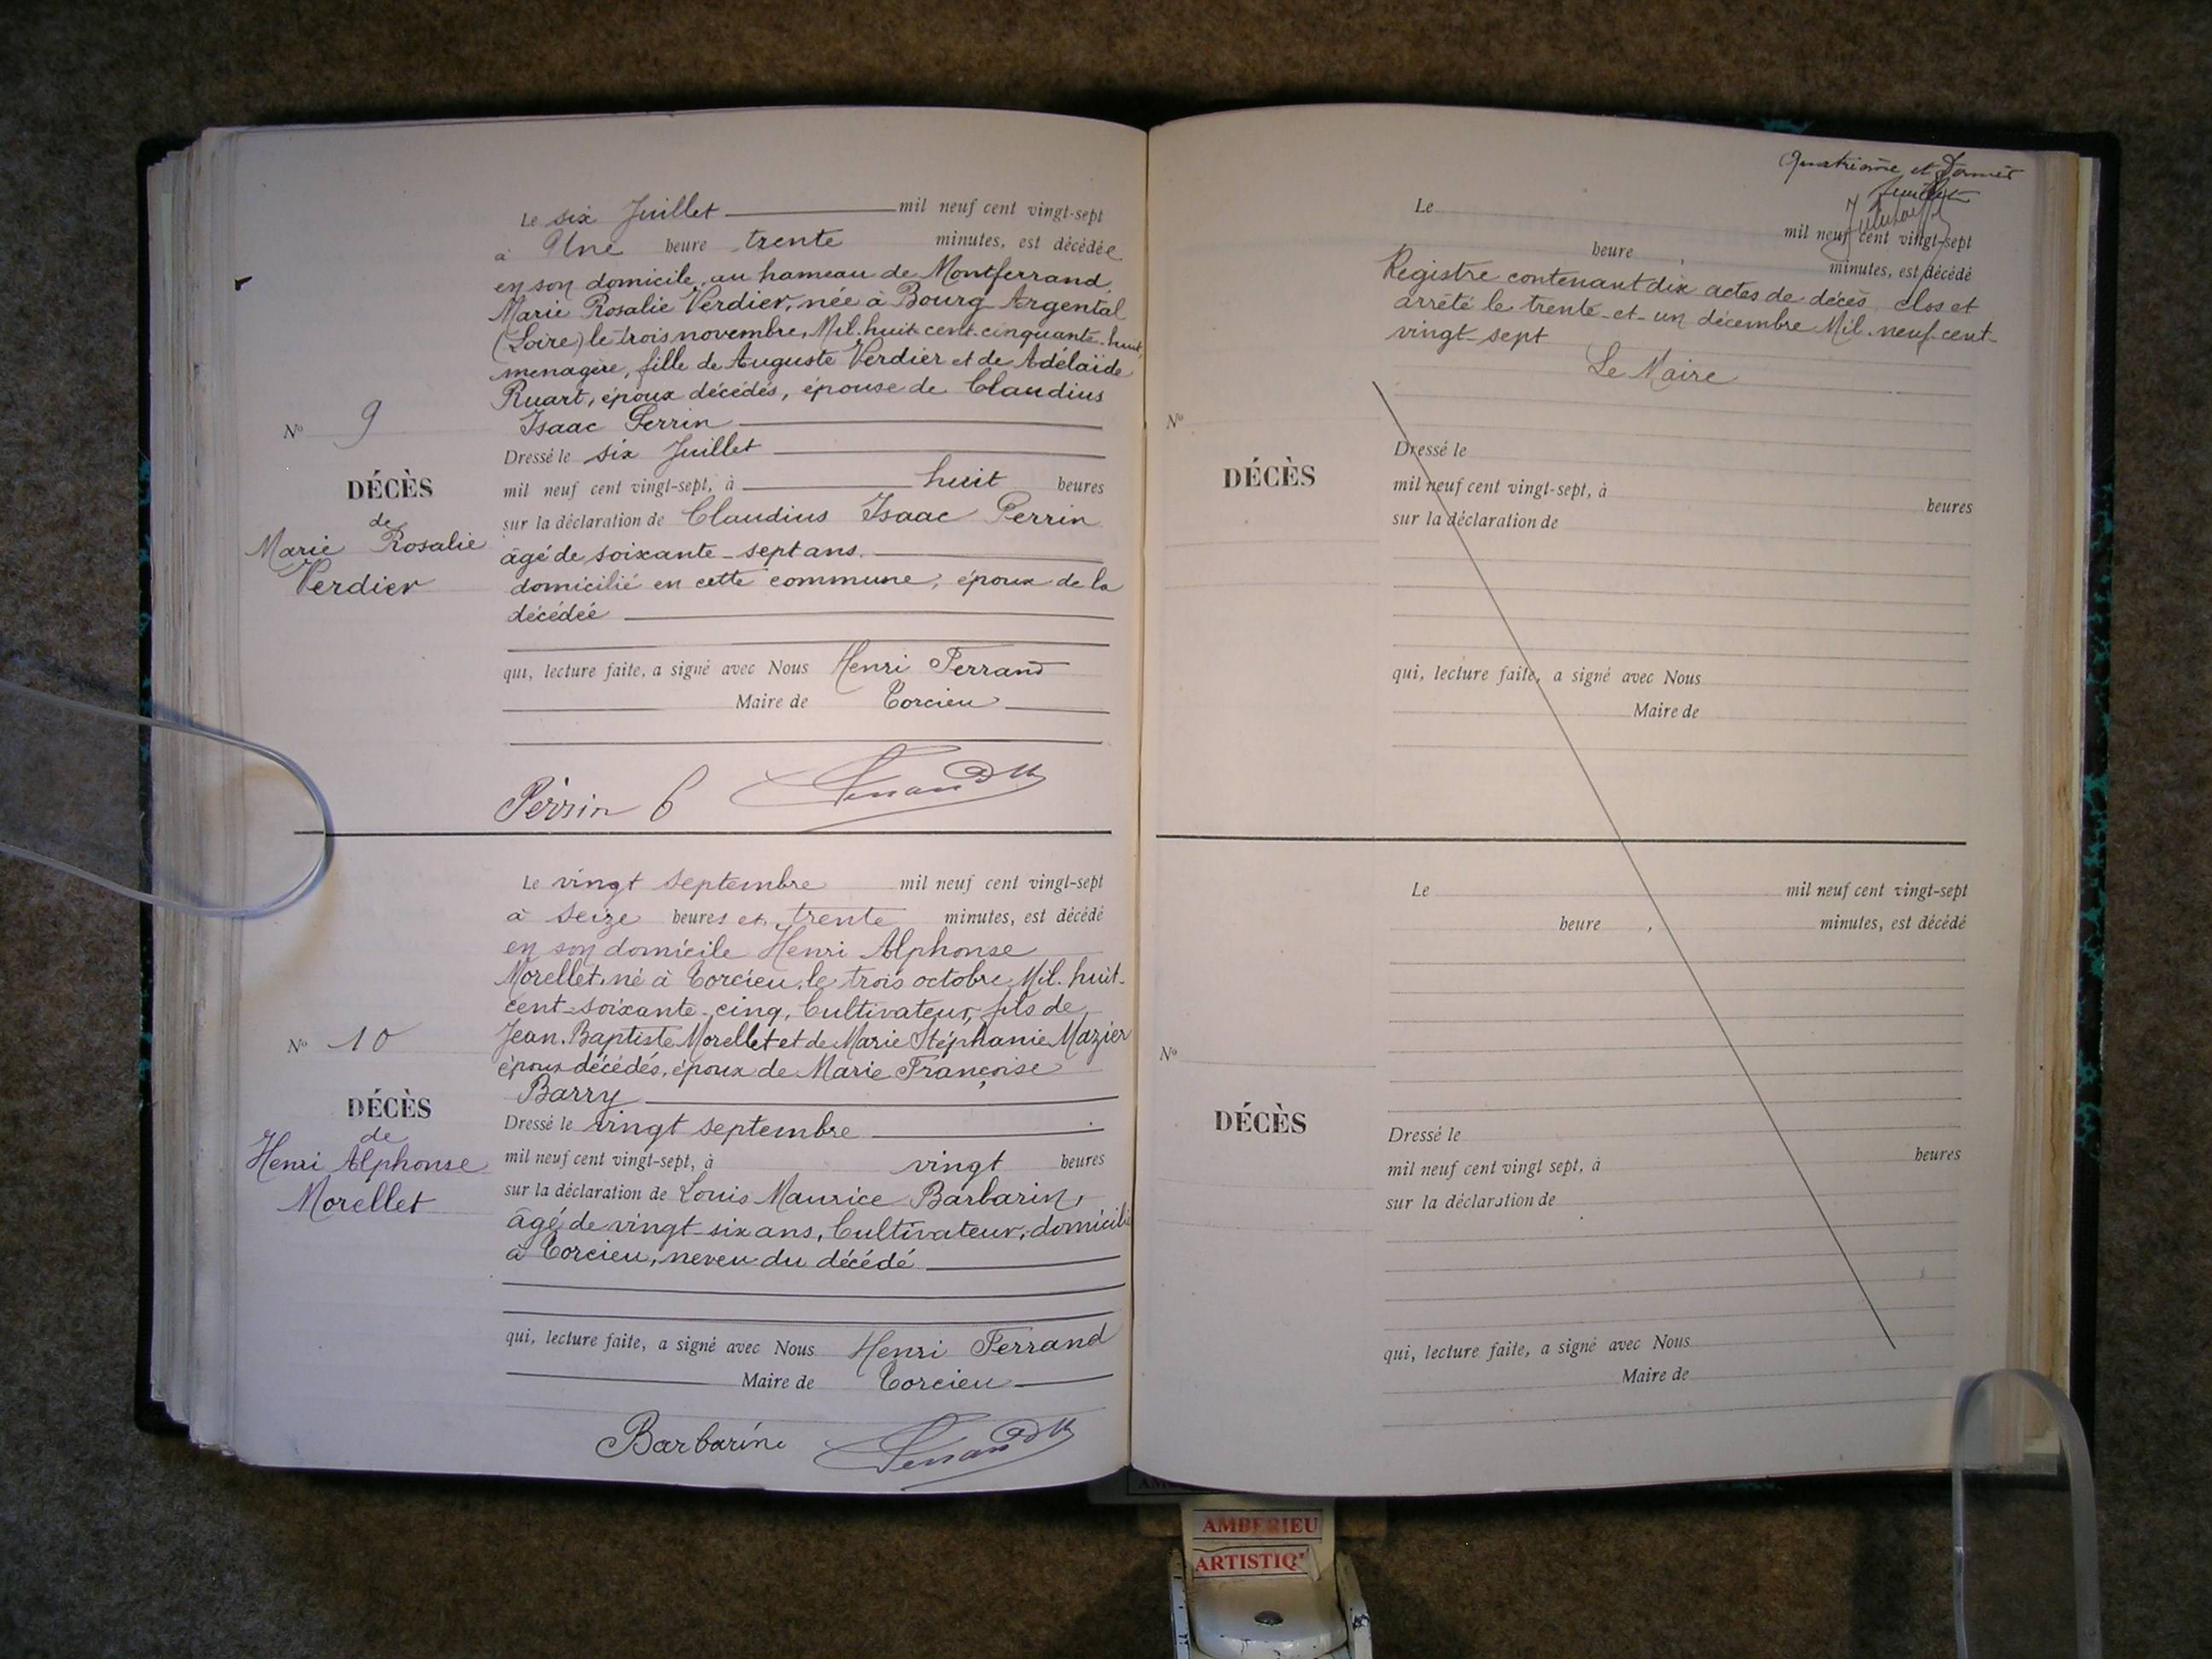 Le six Juillet mil neuf cent vingt-sept
à Une heure trente minutes, est décédée
en son domicile, au hameau de Montferrand,
Marie Rosalie Verdier, née à Bourg Argental
(Loire) le trois novembre, Mil. huit cent. cinquante. huit,
ménagère, fille de Auguste Verdier et de Adélaïde
Ruart, époux décédés, épouse de Claudius
Isaac Perrin
Nº 9
Dressé le six Juillet
DÉCÈS
mil neuf cent vingt-sept, à huit heures
de
Marie Rosalie
Verdier
sur la déclaration de Claudius Isaac Perrin
âgé de soixante-sept ans.
domicilié en cette commune, époux de la
décédée
qui, lecture faite, a signé avec Nous Henri Ferrand
Maire de Torcieu
Perrin C Ferrand
Le vingt septembre mil neuf cent vingt-sept
à seize heures et trente minutes, est décédé
en son domicile Henri Alphonse
Morellet, né à Torcieu, le trois octobre Mil. huit-
cent-soixante-cinq, Cultivateur, fils de
Jean. Baptiste Morellet et de Marie Stéphanie Mazier
époux décédés, époux de Marie Françoise
Barry
Nº 10
Dressé le vingt septembre
DÉCÈS
de
Henri Alphonse
Morellet
mil neuf cent vingt-sept, à vingt heures
sur la déclaration de Louis Maurice Barbarin,
âgé de vingt-six ans, Cultivateur, domicilié
à Torcieu, neveu du décédé
qui, lecture faite, a signé avec Nous Henri Ferrand
Maire de Torcieu
Barbarin Ferrand
Quatrième et Dernier
feuillet
Le mil neuf cent vingt-sept
heure , minutes, est décédé
Registre contenant dix actes de décès, clos et
arrêté le trente-et-un décembre Mil. neuf-cent-
vingt-sept
Le Maire
Nº
DÉCÈS
Dressé le
mil neuf cent vingt-sept, à heures
sur la déclaration de
qui, lecture faite, a signé avec Nous
Maire de
Le mil neuf cent vingt-sept
heure , minutes, est décédé
Nº
DÉCÈS
Dressé le
mil neuf cent vingt sept, à heures
sur la déclaration de
qui, lecture faite, a signé avec Nous
Maire de
AMBERIEU
ARTISTIQ'